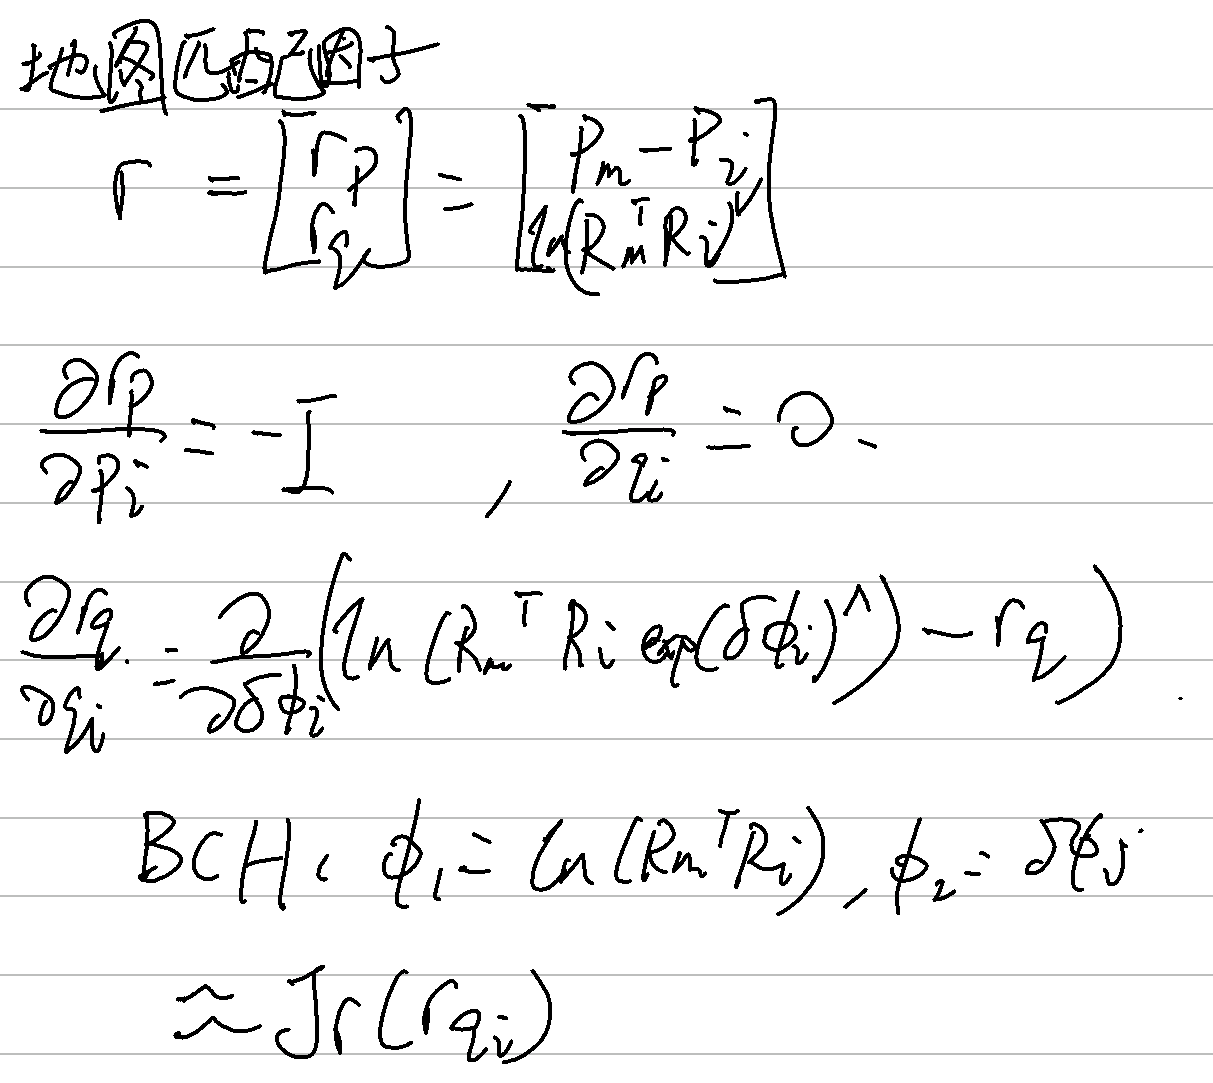 地图匹配因子
r = [r_p; r_q] = [P_m − P_i; ln(R_m^T R_i)^∨]
∂r_p/∂p_i = −I , ∂r_p/∂q_i = 0.
∂r_q/∂q_i = ∂/∂δϕ_i (ln(R_m^T R_i exp(δϕ_i)^∧) − r_q)
BCH: ϕ_1 = ln(R_m^T R_i), ϕ_2 = δϕ_j
≈ Jr(r_{q_i})